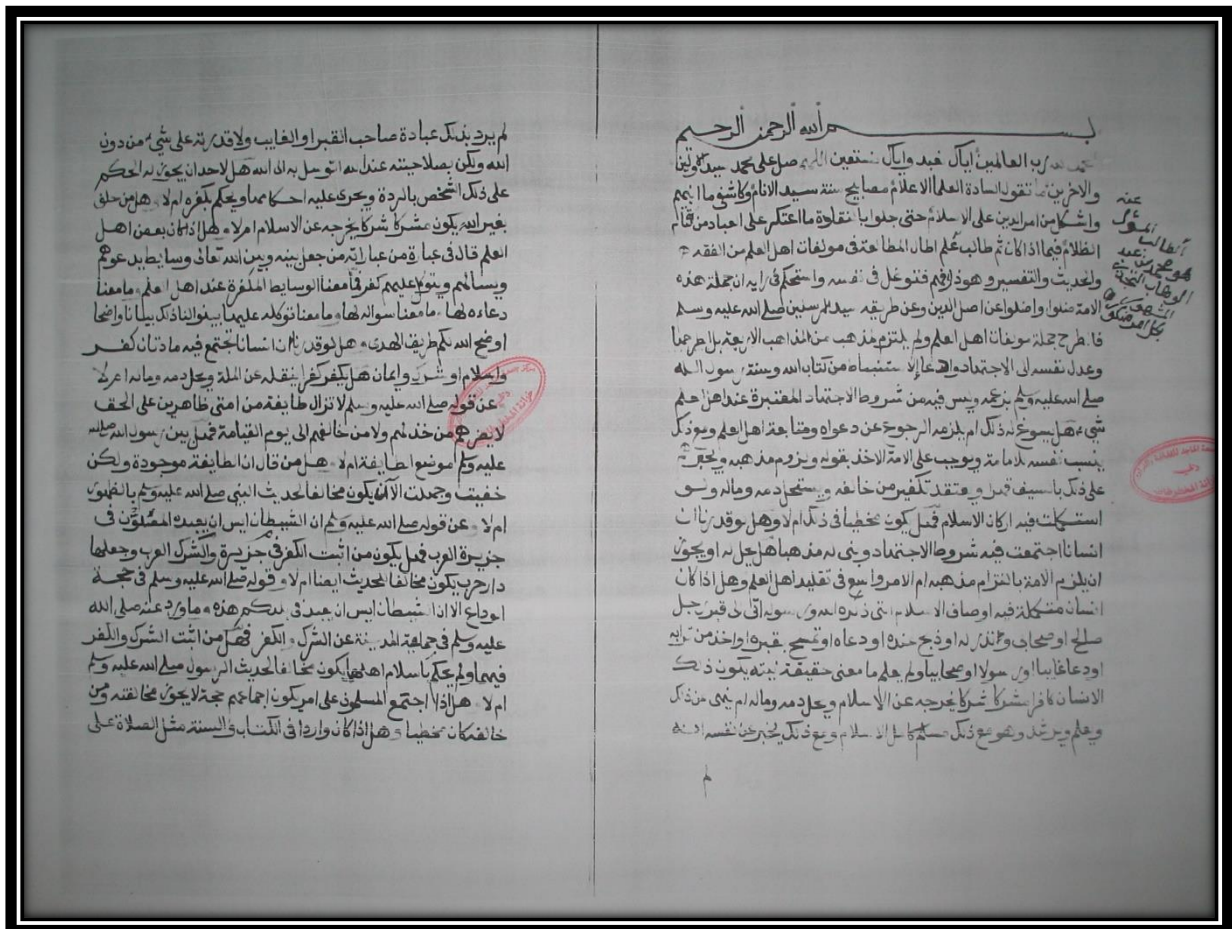 بسم الله الرحمن الرحيم
الحمد لله رب العالمين اياك نعبد واياك نستعين اللهم صل على محمد سيد الاولين
والاخرين ما تقول السادة العلماء الاعلام مصابيح سنة سيد الانام وكاشفو ما ابهم
واشكل من امر الدين على الاسلام حتى جلوا ما اعتكر على احباد من قتام
الظلام فيما اذا كان ثم طالب علم اطال المطالعة في مولفات اهل العلم من الفقه
والحديث والتفسير وهو ذا فهم فتوغل في نفسه واستحكم في رايه ان جملة هذه
الامة ضلوا واضلوا عن اصل الدين وعن طريقه سيد المرسلين صلى الله عليه وسلم
فاطرح جملة مولفات اهل العلم ولم يلتزم مذهب من المذاهب الاربعة بل اطرحها
وعدل نفسه الى الاجتهاد وادعا الاستنباط من كتاب الله وسنة رسول الله
صلى الله عليه ولم بزعمه وليس فيه من شروط الاجتهاد المعتبرة عند اهل العلم
شيء هل يسوغ له ذلك ام يلزمه الرجوع عن دعواه ومتابعة اهل العلم ومع ذلك
ينسب نفسه للامامة ويوجب على الامة الاخذ بقوله ولزوم مذهبه
على ذلك بالسيف ويعتقد تكفير من خالفه ويستحل دمه وماله ولو
استكملت فيه اركان الاسلام فهل يكون مخطيا في ذلك ام لا وهل لو قدرنا ان
انسانا اجتمعت فيه شروط الاجتهاد وبنى له مذهبا هل يحل له او يجوز
ان يلزم الامة بالتزام مذهبه ام الامر واسع في تقليد اهل العلم وهل اذا كان
انسان متكملة فيه اوصاف الاسلام التي ذكره الله ورسوله اتى الى قبر رجل
صالح او صحابي ونذر له او ذبح عنده او دعاه او تمسح بقبره او اخذ من ترابه
او دعا غايبا او رسولا او صحابيا ولم يعلم ما معنى حقيقة نيته يكون ذلك
الانسان كافرا مشركا شركا يخرجه عن الاسلام ويحل دمه وماله ام ينهى عن ذلك
ويعلم ويرشد وهو مع ذلك مسلم كامل الاسلام ومع ذلك يخبر عن نفسه انه
لم
عنه
الطالب المذكور
هو محمد بن عبد
الوهاب النجدي
المشهور
بكل امر منكور
لم يرد بذلك عبادة صاحب القبر او الغايب ولا قدرته على شيء من دون
الله ولكن بصلاحيته عند الله اتوسل به الى الله هل لاحد ان يجوز له الحكم
على ذلك الشخص بالردة ويجري عليه احكامها ويحكم بكفره ام لا وهل من حلق
بغير الله يكون مشركا شركا يخرجه عن الاسلام ام لا وهل اذا كان بعض اهل
العلم قال في عبارة من عباراته من جعل بينه وبين الله تعالى وسايط يدعوهم
ويسالهم ويتوكل عليهم كفر فما معنا الوسايط المكفرة عند اهل العلم وما معنا
دعاءه لها وما معنا سواله لها وما معنا توكله عليها بينوا لنا ذلك بيانا واضحا
اوضح الله بكم طريق الهدى وهل لو قدرنا ان انسانا تجتمع فيه مادتان كفر
واسلام او شرك وايمان هل يكفر كفرا ينقله عن الملة ويحل دمه وماله ام لا
عن قوله صلى الله عليه وسلم لا تزال طايفة من امتي ظاهرين على الحق
لا يضرهم من خذلهم ولا من خالفهم الى يوم القيامة فهل بين رسول الله صلى الله
عليه ولم موضع الطايفة ام لا وهل من قال ان الطايفة موجودة ولكن
خفيت وجهلت الآن يكون مخالفا لحديث النبي صلى الله عليه ولم بالظهور
ام لا وعن قوله صلى الله عليه ولم ان الشيطان ايس ان يعبده المصلون في
جزيرة العرب فهل يكون من اثبت الكفر في جزيرة والشرك العرب وجعلها
دار حرب يكون مخالفا لحديث ايضا ام لا وقوله صلى الله عليه وسلم في حجة
الوداع الا ان الشيطان ايس ان يعبد في بلدكم هذه وما ورد عنه صلى الله
عليه وسلم في حماية المدينة عن الشرك والكفر فهل من اثبت الشرك والكفر
فيهما ولم يحكم باسلام اهلهما يكون مخالفا لحديث الرسول صلى الله عليه ولم
ام لا وهل اذا اجتمع المسلمون على امر يكون اجماعهم حجة لا يجوز مخالفته ومن
خالفه كان مخطيا وهل اذا كان واردا في الكتاب والسنة مثل الصلاة على